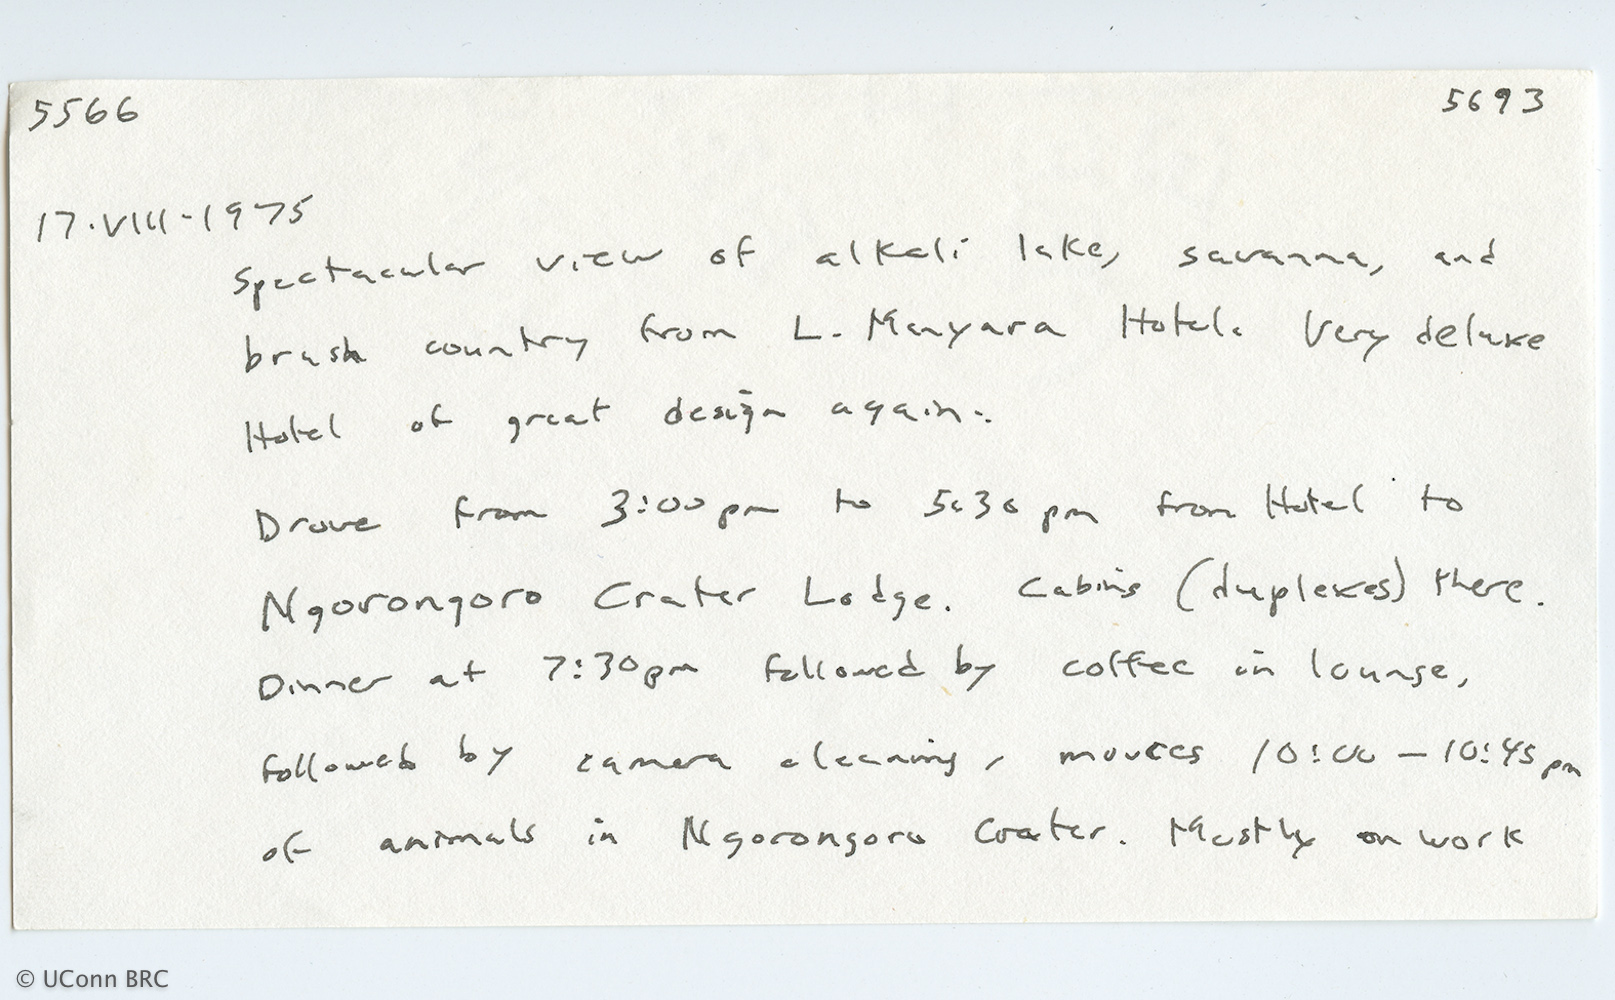 5566 5693
17.VIII-1975
Spectacular view of alkali lake, savanna, and
brush country from L. Manyara Hotel. Very deluxe
Hotel of great design again.
Drove from 3:00pm to 5:30 pm from Hotel to
Ngorongoro Crater Lodge. Cabins (duplexes) there.
Dinner at 7:30pm followed by coffee in lounge,
followed by camera cleaning, movies 10:00 - 10:45pm
of animals in Ngorongoro Crater. Mostly on work
© UConn BRC